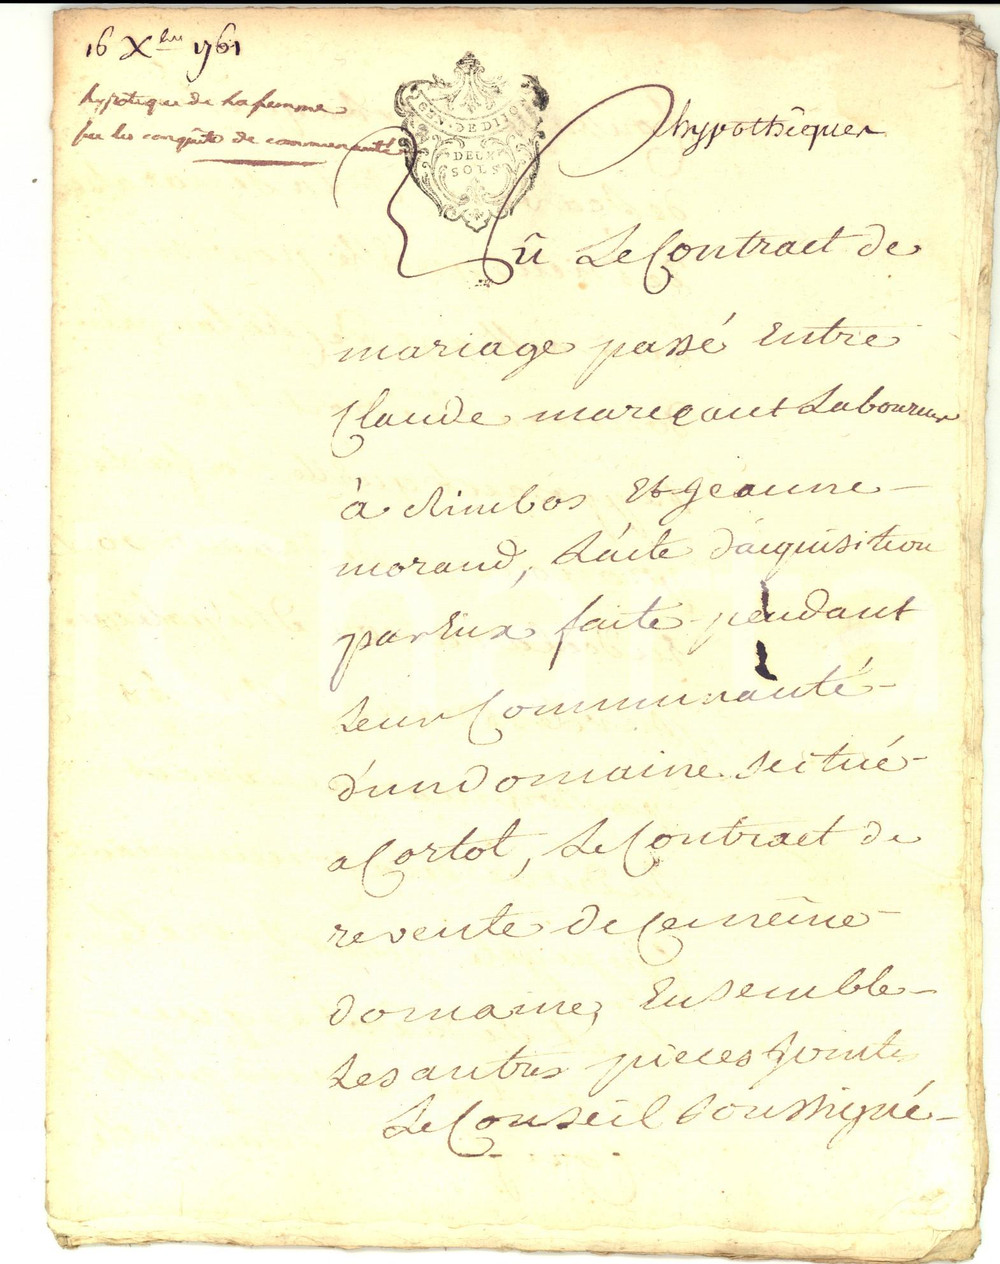 16 Xbre 1761
hypoteque de la femme
sur les conquêts de communauté
GEN. DE DIJON
DEUX
SOLS
hypothèques
Vû Le Contract de
mariage passé Entre
Claude mareçant Laboureur
à Rimbos Et Jeanne
morand, L'acte d'acquisition
par Eux faite pendant
Leur Communauté
d'un domaine scitué
a Cortot, Le Contract de
revente de Ce même
domaine, Ensemble
Les autres pieces Jointes
Le Conseil Soussigné